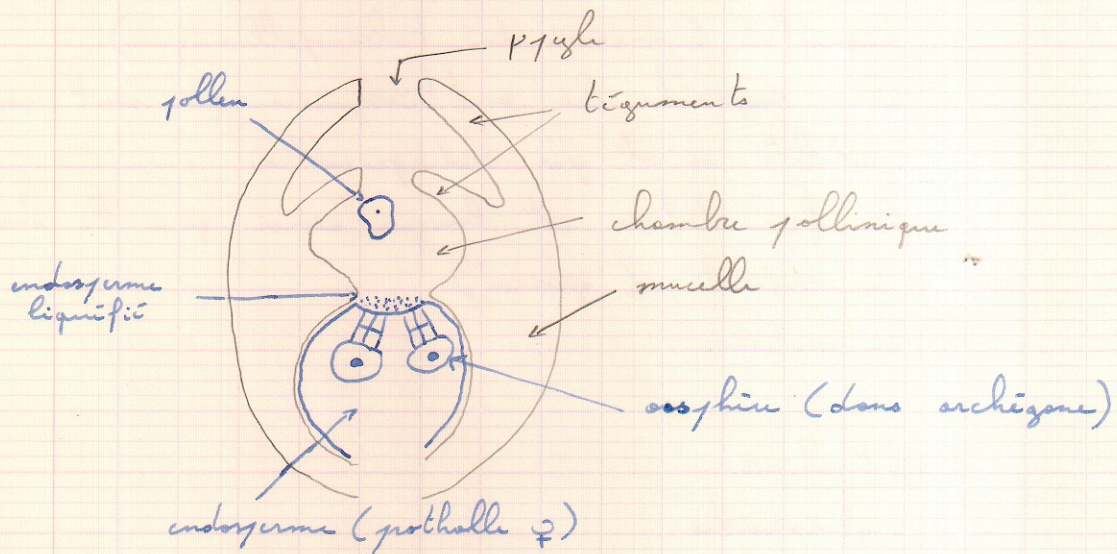 μpyle
pollen
téguments
chambre pollinique
nucelle
endosperme
liquéfié
oosphère (dans archégone)
endosperme (prothalle ♀)